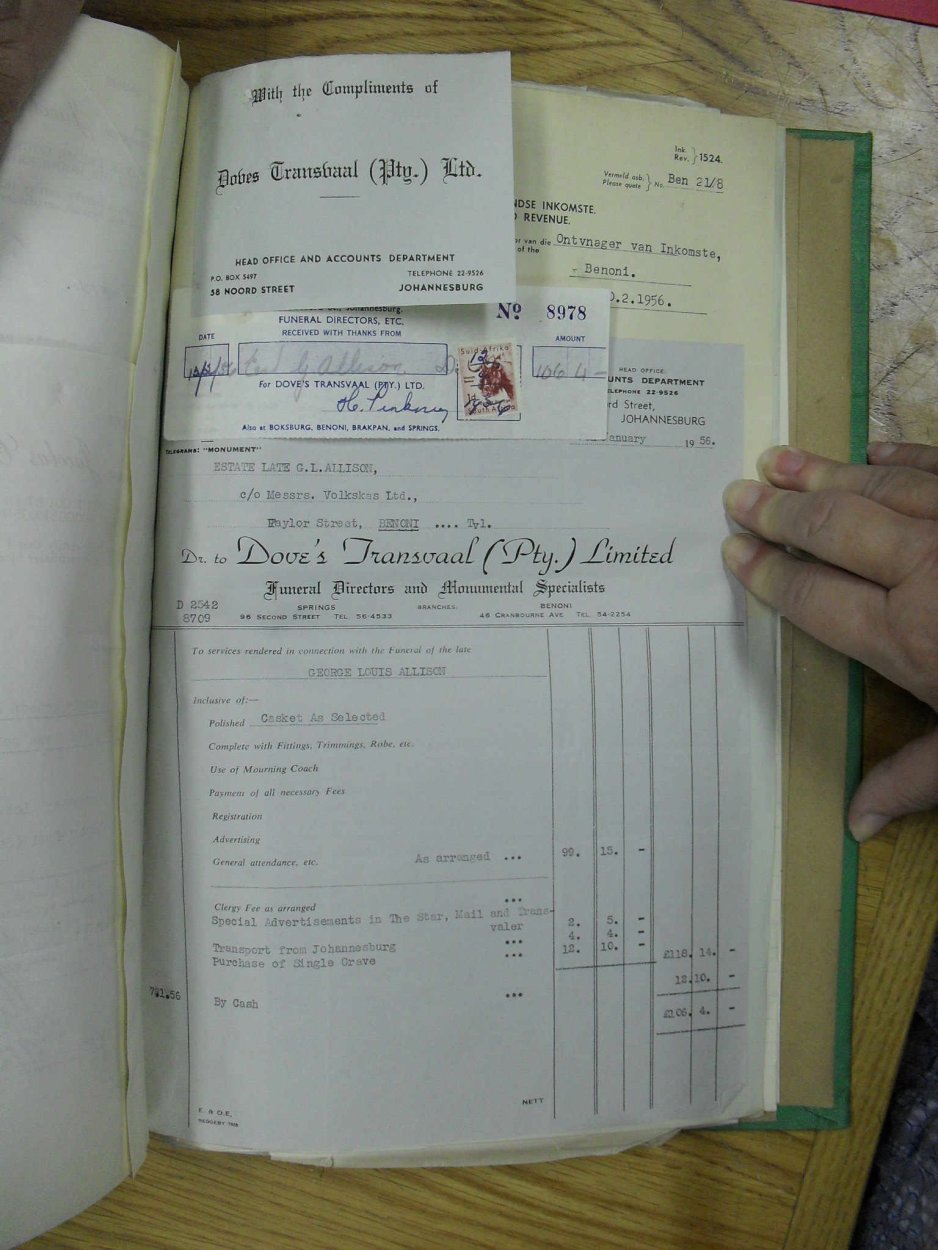 With the Compliments of
Doves Transvaal (Pty.) Ltd.
HEAD OFFICE AND ACCOUNTS DEPARTMENT
P.O. BOX 5497 TELEPHONE 22-9526
58 NOORD STREET JOHANNESBURG
Ink. Rev. } 1524.
Vermeld asb. Please quote } No. Ben 21/8
NDSE INKOMSTE.
REVENUE.
van die of the Ontvnager van Inkomste,
- Benoni.
.2.1956.
Johannesburg.
FUNERAL DIRECTORS, ETC.
RECEIVED WITH THANKS FROM
No 8978
DATE AMOUNT
Allison 106 4 -
For DOVE'S TRANSVAAL (PTY.) LTD.
Suid-Afrika
South Africa
Also at BOKSBURG, BENONI, BRAKPAN, and SPRINGS.
HEAD OFFICE:
UNTS DEPARTMENT
TELEPHONE 22-9526
rd Street,
JOHANNESBURG
January 1956.
TELEGRAMS: "MONUMENT"
ESTATE LATE G.L.ALLISON,
c/o Messrs. Volkskas Ltd.,
Taylor Street, BENONI .... Tvl.
Dr. to Dove's Transvaal (Pty.) Limited
Funeral Directors and Monumental Specialists
D 2542
8709
SPRINGS BRANCHES: BENONI
96 SECOND STREET TEL. 56-4533 46 CRANBOURNE AVE TEL. 54-2254
To services rendered in connection with the Funeral of the late
GEORGE LOUIS ALLISON
Inclusive of:—
Polished Casket As Selected
Complete with Fittings, Trimmings, Robe, etc.
Use of Mourning Coach
Payment of all necessary Fees
Registration
Advertising
General attendance, etc. As arranged ... 99. 15. -
Clergy Fee as arranged ...
Special Advertisements in The Star, Mail and Trans-
valer 2. 5. -
... 4. 4. -
Transport from Johannesburg ... 12. 10. -
Purchase of Single Grave £118. 14. -
12.10. -
By Cash ...
£106. 4. -
E. & O.E.
NETT